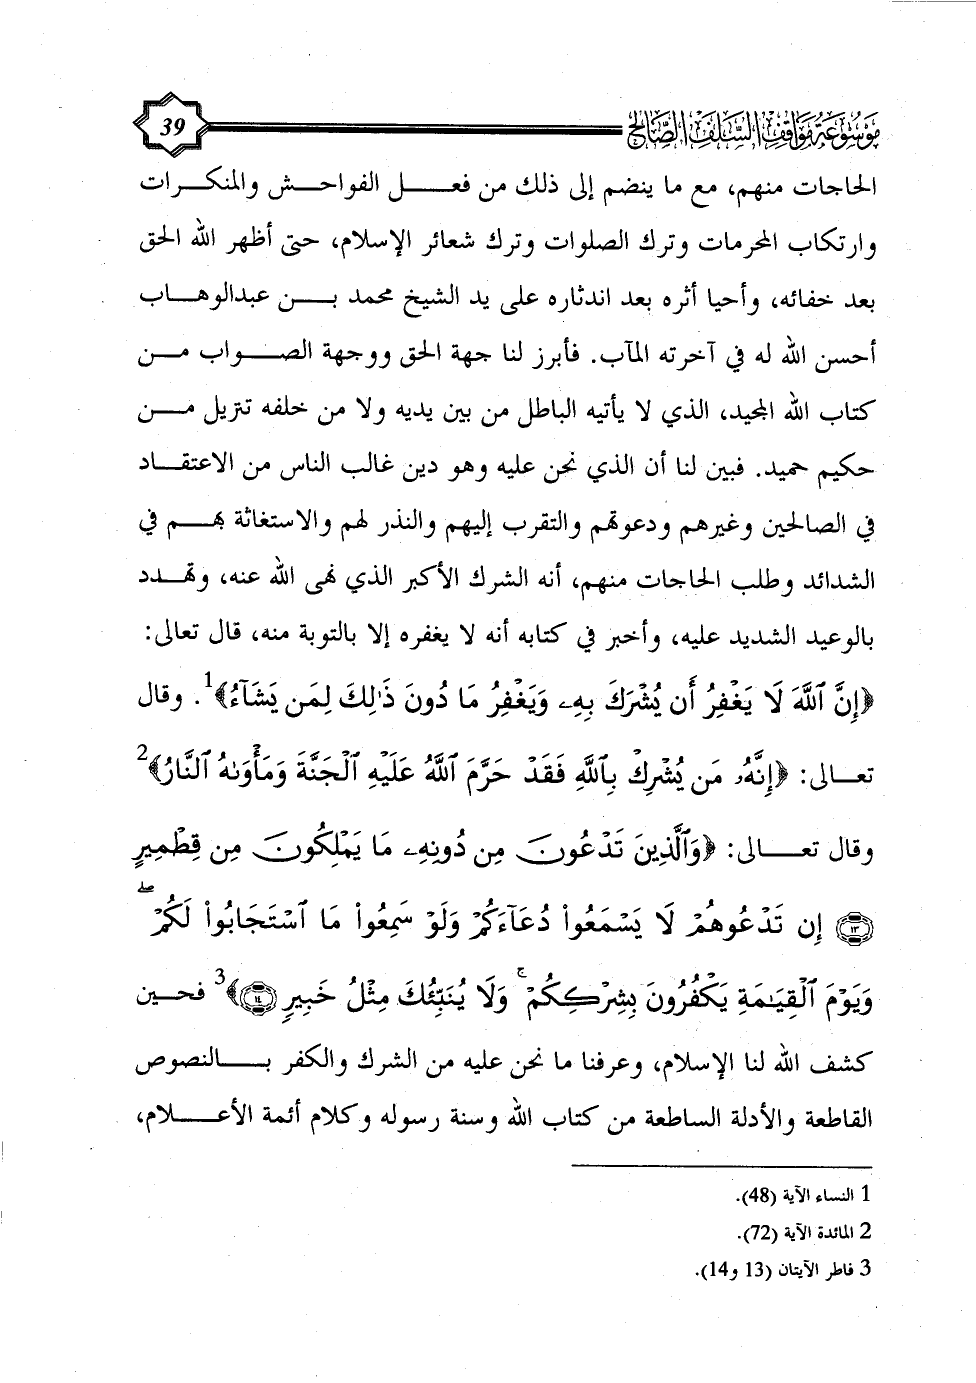 موسوعة مواقف السلف الصالح
39
الحاجات منهم، مع ما ينضم إلى ذلك من فعل الفواحش والمنكرات
وارتكاب المحرمات وترك الصلوات وترك شعائر الإسلام، حتى أظهر الله الحق
بعد خفائه، وأحيا أثره بعد اندثاره على يد الشيخ محمد بن عبدالوهاب
أحسن الله له في آخرته المآب. فأبرز لنا جهة الحق ووجهة الصواب من
كتاب الله المجيد، الذي لا يأتيه الباطل من بين يديه ولا من خلفه تنزيل من
حكيم حميد. فبين لنا أن الذي نحن عليه وهو دين غالب الناس من الاعتقاد
في الصالحين وغيرهم ودعوتهم والتقرب إليهم والنذر لهم والاستغاثة بهم في
الشدائد وطلب الحاجات منهم، أنه الشرك الأكبر الذي نهى الله عنه، وتهدد
بالوعيد الشديد عليه، وأخبر في كتابه أنه لا يغفره إلا بالتوبة منه، قال تعالى:
﴿إِنَّ ٱللَّهَ لَا يَغْفِرُ أَن يُشْرَكَ بِهِۦ وَيَغْفِرُ مَا دُونَ ذَٰلِكَ لِمَن يَشَآءُ﴾1. وقال
تعالى: ﴿إِنَّهُۥ مَن يُشْرِكْ بِٱللَّهِ فَقَدْ حَرَّمَ ٱللَّهُ عَلَيْهِ ٱلْجَنَّةَ وَمَأْوَىٰهُ ٱلنَّارُ﴾2
وقال تعالى: ﴿وَٱلَّذِينَ تَدْعُونَ مِن دُونِهِۦ مَا يَمْلِكُونَ مِن قِطْمِيرٍ
۝١٣ إِن تَدْعُوهُمْ لَا يَسْمَعُوا۟ دُعَآءَكُمْ وَلَوْ سَمِعُوا۟ مَا ٱسْتَجَابُوا۟ لَكُمْ ۖ
وَيَوْمَ ٱلْقِيَٰمَةِ يَكْفُرُونَ بِشِرْكِكُمْ ۚ وَلَا يُنَبِّئُكَ مِثْلُ خَبِيرٍ ۝١٤﴾3 فحين
كشف الله لنا الإسلام، وعرفنا ما نحن عليه من الشرك والكفر بالنصوص
القاطعة والأدلة الساطعة من كتاب الله وسنة رسوله وكلام أئمة الأعلام،
1 النساء الآية (48).
2 المائدة الآية (72).
3 فاطر الآيتان (13 و14).